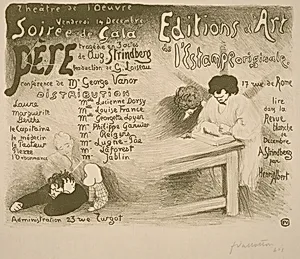 Théâtre de l'Œuvre
Vendredi 14 Décembre
Soirée de Gala
PÈRE
tragédie en 3 actes
de Aug Strindberg
traduction de G. Loiseau
conférence de Mr George Vanor
DISTRIBUTION
Laura Mme Lucienne Dorsy
Marguerite Mme Louise France
Bertha Mme Georgette Loyer
le Capitaine Mr Philippe Garnier
le médecin
le Pasteur Mr Lugné-Poe
Pierre Mr
l'Ordonnance Mr Jablin
Administration 23 rue Turgot
Editions d'Art
de l'Estampe originale
17 rue de Rome
lire
dans la
Revue
blanche
de
Décembre
A. Strindberg
par
Henri Albert